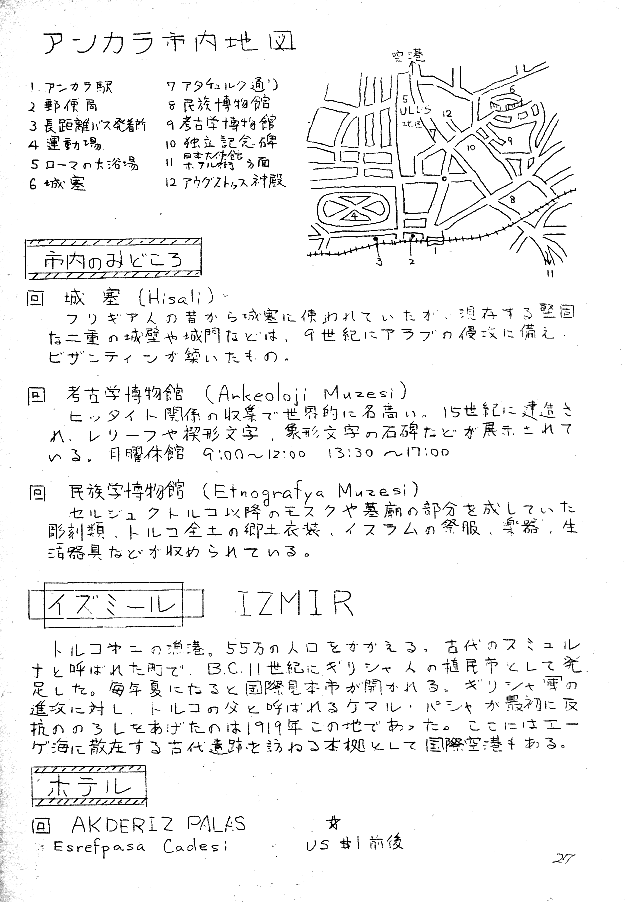 アンカラ市内地図
1 アンカラ駅
2 郵便局
3 長距離バス発着所
4 運動場
5 ローマの大浴場
6 城塞
7 アタチュルク通り
8 民族博物館
9 考古学博物館
10 独立記念碑
11 日本大使館 ホテル街 方面
12 アウグストゥス神殿
空港
5
ULUS
地区
7
12
6
10
9
8
4
3
2
1
11
市内のみどころ
回 城塞 (Hisali)
フリギア人の昔から城塞に使われていたが、現存する堅固
な二重の城壁や城門などは、9世紀にアラブの侵攻に備え、
ビザンティンが築いたもの。
回 考古学博物館 (Arkeoloji Muzesi)
ヒッタイト関係の収集で世界的に名高い。15世紀に建造さ
れ、レリーフや楔形文字、象形文字の石碑などが展示されて
いる。月曜休館 9:00〜12:00 13:30〜17:00
回 民族学博物館 (Etnografya Muzesi)
セルジュクトルコ以降のモスクや墓廟の部分を成していた
彫刻類、トルコ全土の郷土衣装、イスラムの祭服、楽器、生
活器具などが収められている。
イズミール IZMIR
トルコ第二の漁港。55万の人口をかかえる。古代のスミュル
ナと呼ばれた町で、B.C.11世紀にギリシャ人の植民市として発
足した。毎年夏になると国際見本市が開かれる。ギリシャ軍の
進攻に対し、トルコの父と呼ばれるケマル・パシャが最初に反
抗ののろしをあげたのは1919年この地であった。ここにはエー
ゲ海に散在する古代遺跡を訪ねる本拠として国際空港もある。
ホテル
回 AKDERIZ PALAS ☆
Esrefpasa Cadesi US $1前後
27